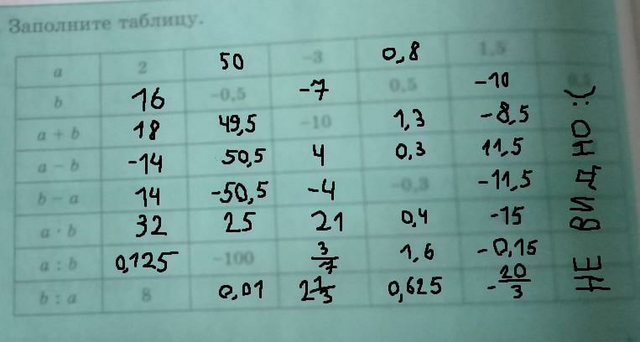 Заполните таблицу.
a 2 50 -3 0,8 1,5
b 16 -0,5 -7 0,5 -10
a + b 18 49,5 -10 1,3 -8,5
a - b -14 50,5 4 0,3 11,5
b - a 14 -50,5 -4 -0,3 -11,5
a · b 32 25 21 0,4 -15
a : b 0,125 -100 3/7 1,6 -0,15
b : a 8 0,01 2 1/3 0,625 -20/3
НЕ ВИДНО :(